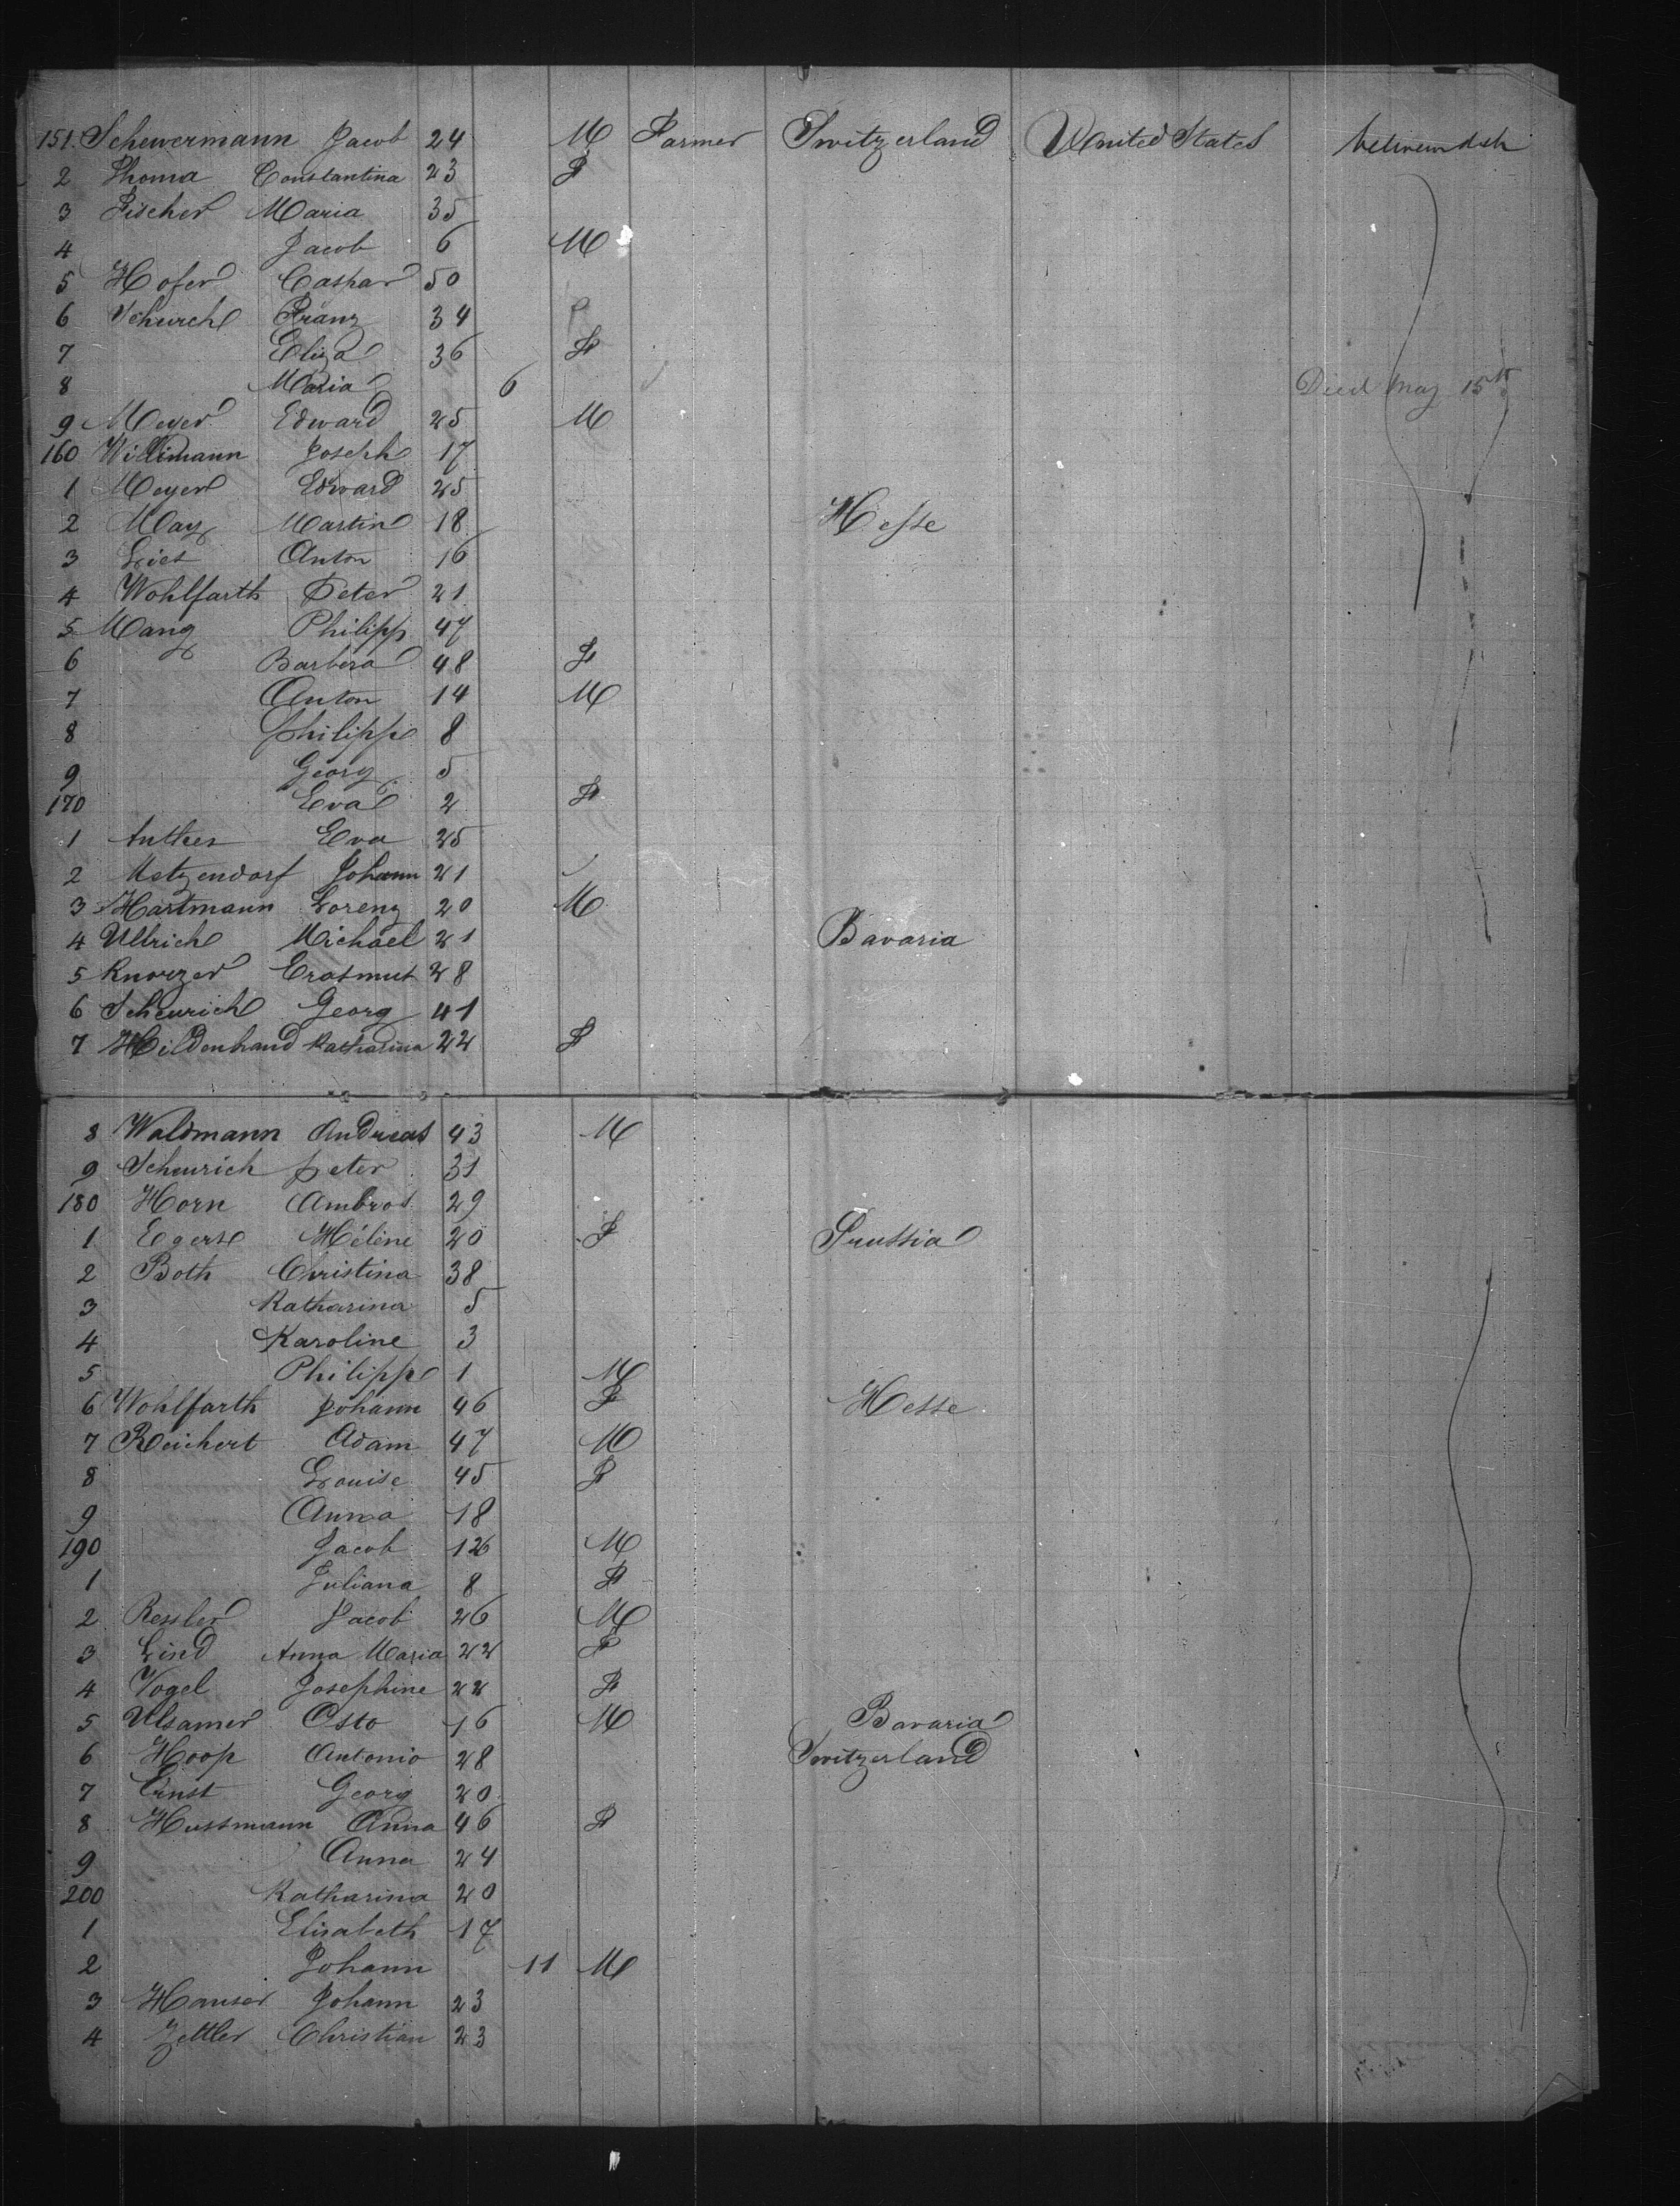 151. Scheuermann Jacob 24 M Farmer Switzerland United States between deck
2 Thoma Constantina 23 F
3 Fischer Maria 35
4 Jacob 6 M
5 Hofer Caspar 50
6 Schurch Franz 34
7 Eliza 36 F
8 Maria 6 Died May 15th
9 Meyer Edward 25 M
160 Willimann Joseph 17
1 Meyer Edward 25
2 May Martin 18 Hesse
3 Anton 16
4 Wohlfarth Peter 21
5 Mang Philipp 47
6 Barbera 48 F
7 Anton 14 M
8 Philipp 8
9 Georg 5
170 Eva 2 F
1 Anthes Eva 25
2 Metzendorf Johann 21
3 Hartmann Lorenz 20 M
4 Ullrich Michael 21 Bavaria
5 Knorzer Erasmus 28
6 Scheurich Georg 41
7 Hildenbrand Katharina 22 F
8 Waldmann Andreas 43 M
9 Scheurich Peter 31
180 Horn Ambros 29
1 Egers Hélène 20 F Prussia
2 Both Christina 38
3 Katharina 5
4 Karoline 3
5 Philipp 1 M
6 Wohlfarth Johann 46 F Hesse
7 Reichert Adam 47 M
8 Louise 45 F
9 Anna 18
190 Jacob M
1 Juliana 8 F
2 Ressler Jacob 26 M
3 Lind Anna Maria 22 F
4 Vogel Josephine 22 F
5 Ulsamer Osto 16 M Bavaria
6 Hoop Antonio 28 Switzerland
7 Ernst Georg 20
8 Hussmann Anna 46 F
9 Anna 24
200 Katharina 20
1 Elisabeth 17
2 Johann 11 M
3 Hauser Johann 23
4 Zettler Christian 23